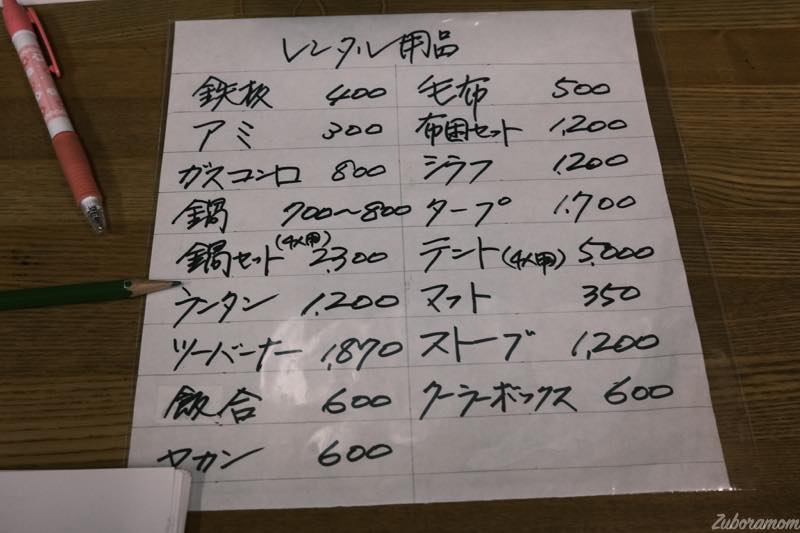 レンタル用品
鉄板 400 毛布 500
アミ 300 布団セット 1,200
ガスコンロ 800 シラフ 1,200
鍋 700～800 タープ 1,700
鍋セット(4人用) 2,300 テント(4人用) 5,000
ランタン 1,200 マット 350
ツーバーナー 1,870 ストーブ 1,200
飯合 600 クーラーボックス 600
ヤカン 600
Zuboramom